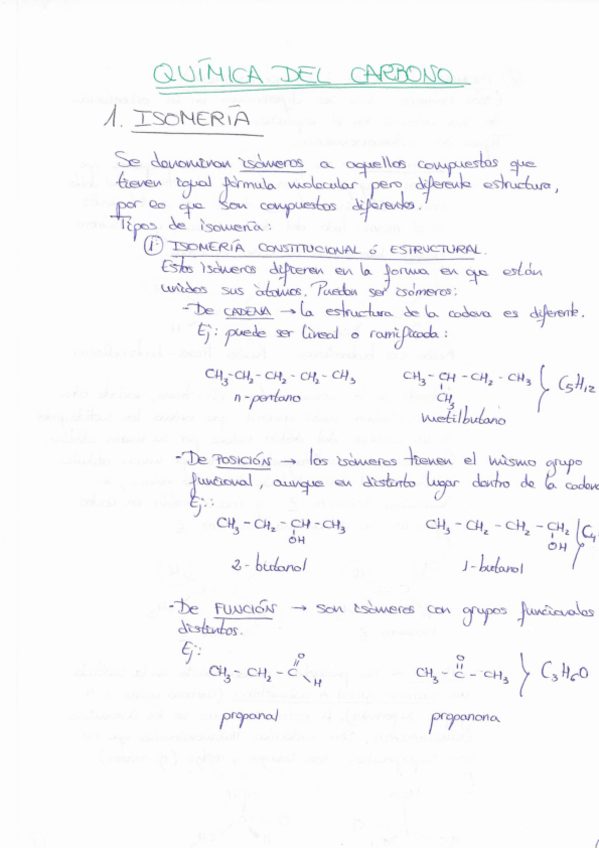 QUÍMICA DEL CARBONO
1. ISOMERÍA
Se denominan isómeros a aquellos compuestos que
tienen igual fórmula molecular pero diferente estructura,
por lo que son compuestos diferentes.
Tipos de isomería:
1. ISOMERÍA CONSTITUCIONAL ó ESTRUCTURAL.
Estos isómeros difieren en la forma en que están
unidos sus átomos. Pueden ser isómeros:
- De CADENA → la estructura de la cadena es diferente.
Ej: puede ser lineal o ramificada:
CH₃-CH₂-CH₂-CH₂-CH₃ CH₃-CH-CH₂-CH₃ } C₅H₁₂
CH₃
n-pentano metilbutano
- De POSICIÓN → los isómeros tienen el mismo grupo
funcional, aunque en distinto lugar dentro de la cadena
Ej:
CH₃-CH₂-CH-CH₃ CH₃-CH₂-CH₂-CH₂ } C₄
OH OH
2-butanol 1-butanol
- De FUNCIÓN → son isómeros con grupos funcionales
distintos.
Ej:
O O
CH₃-CH₂-C CH₃-C-CH₃ } C₃H₆O
H
propanal propanona